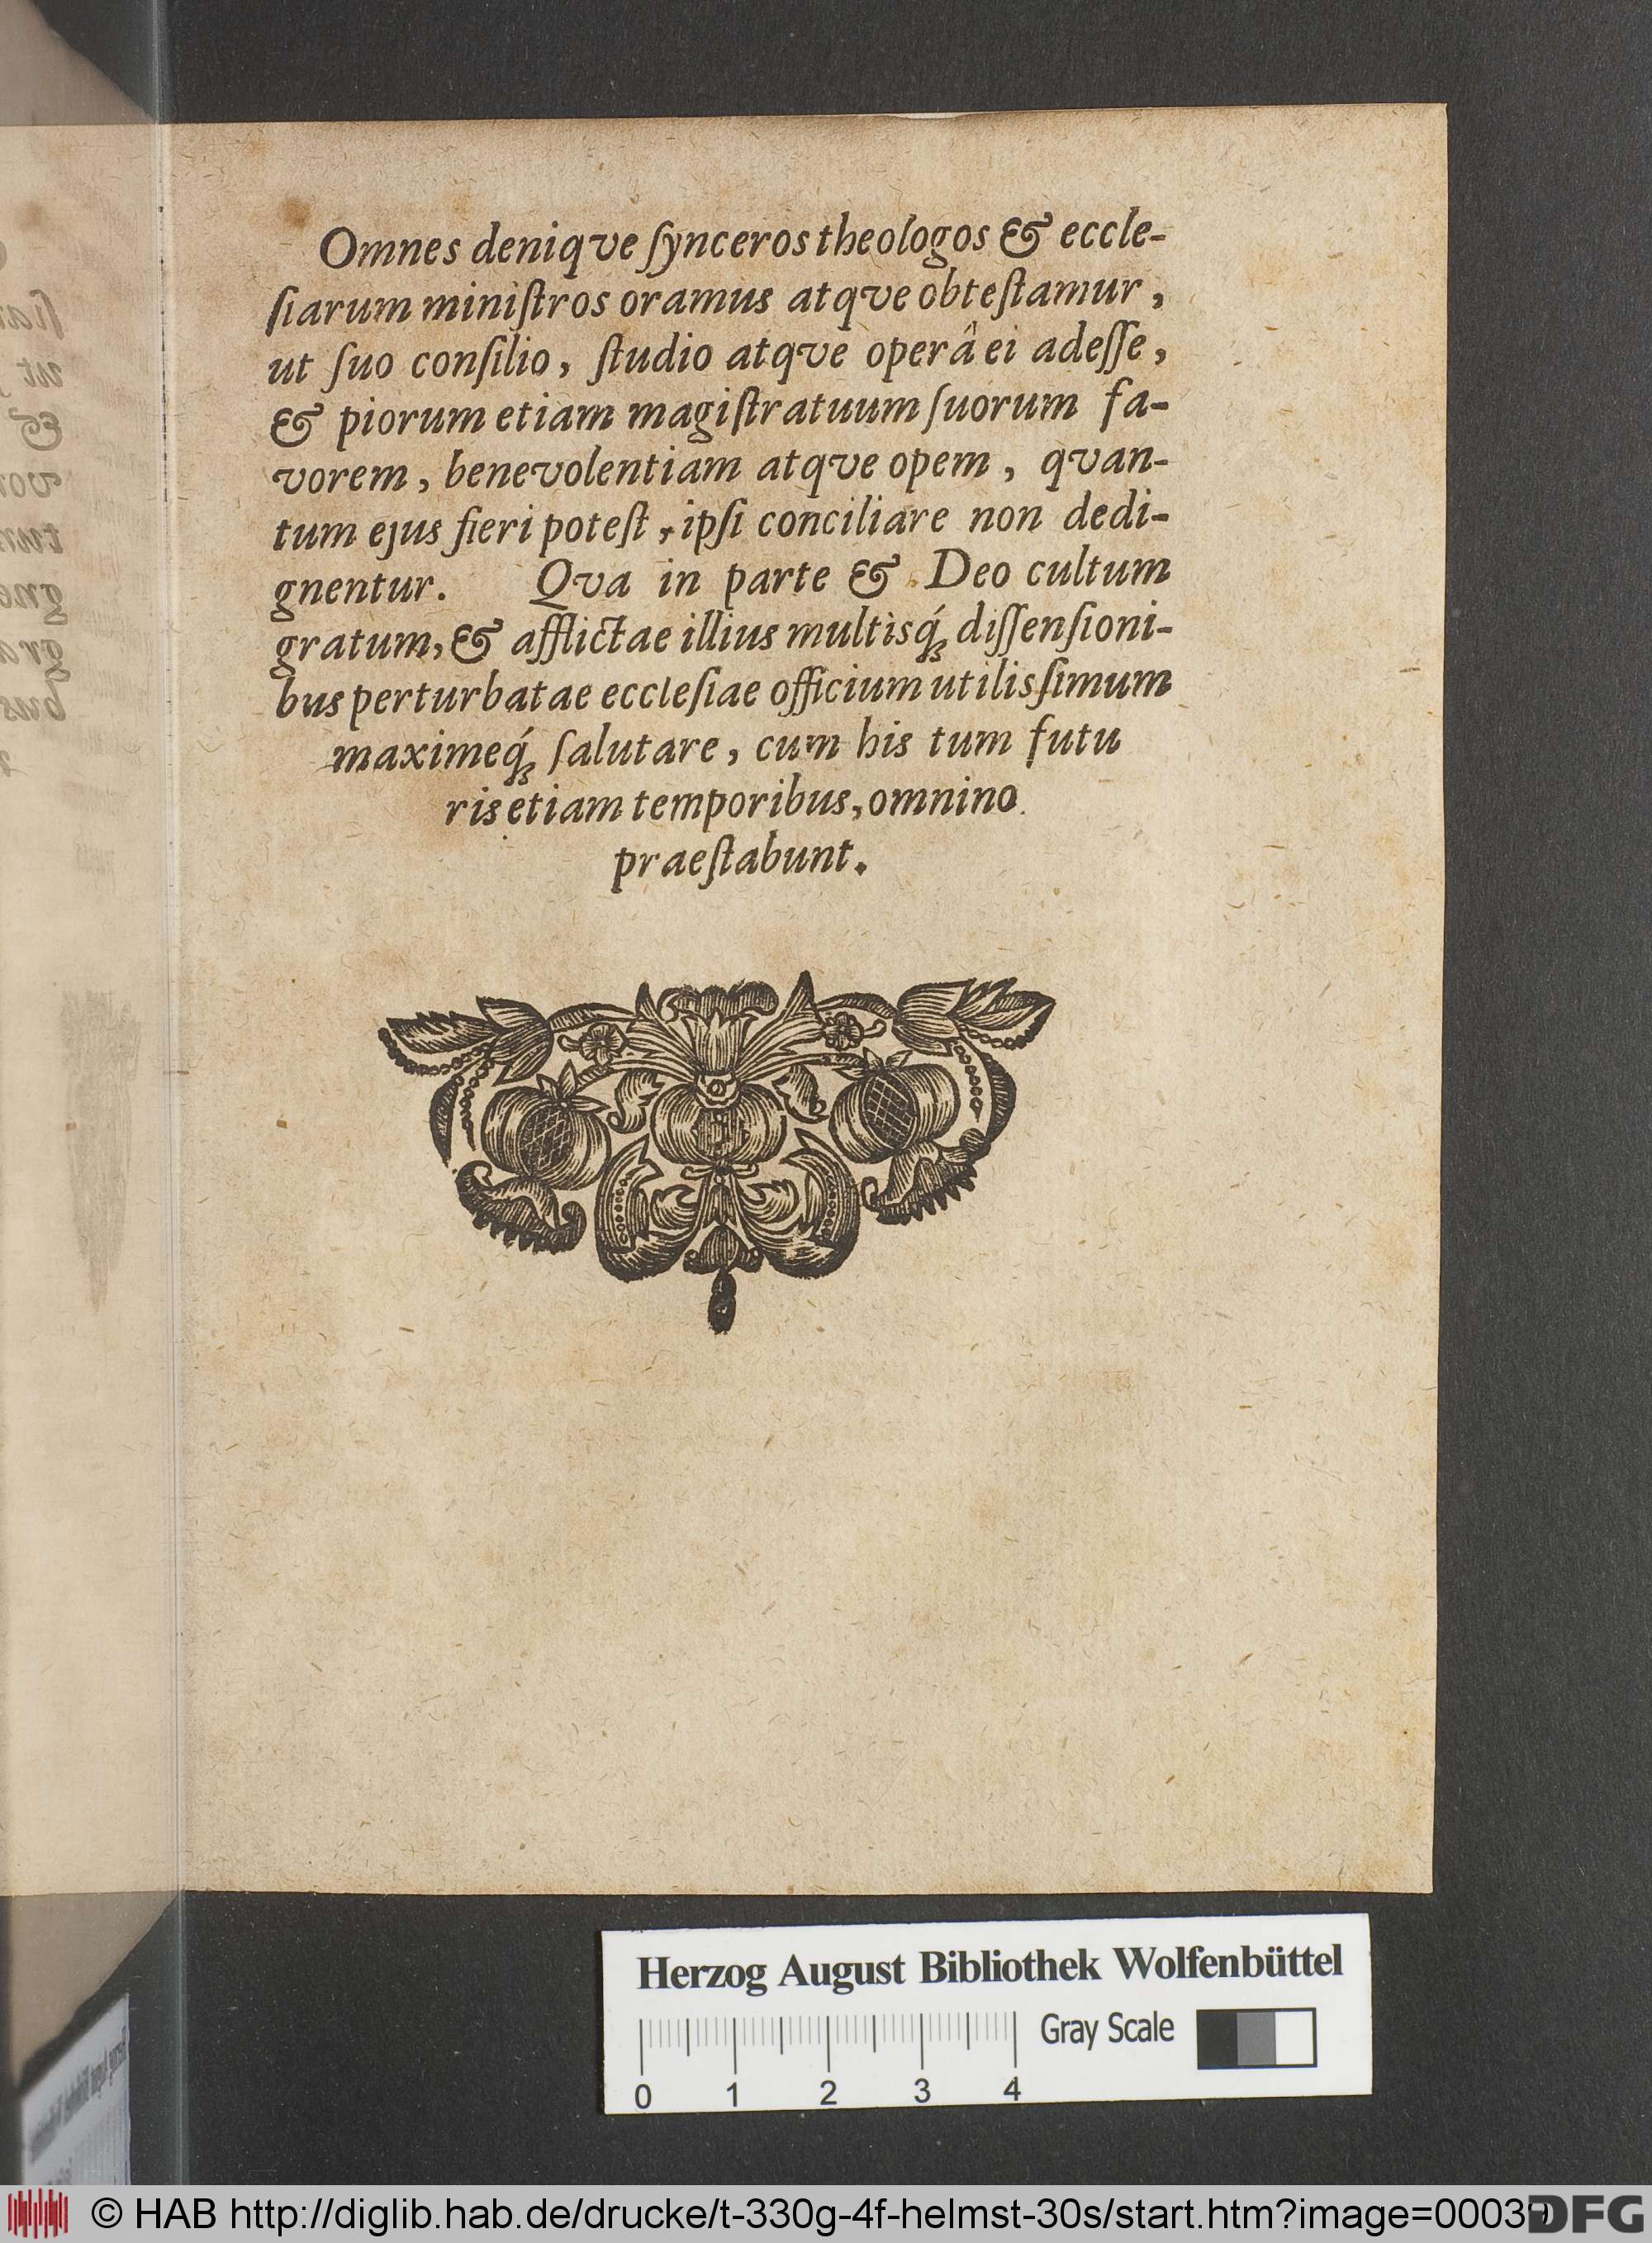 Omnes deniqve ſynceros theologos & eccle-
ſiarum miniſtros oramus atqve obteſtamur,
ut ſuo conſilio, ſtudio atqve operâ ei adeſſe,
& piorum etiam magiſtratuum ſuorum fa-
vorem, benevolentiam atqve opem, qvan-
tum ejus fieri poteſt, ipſi conciliare non dedi-
gnentur. Qva in parte & Deo cultum
gratum, & afflictae illius multisq́; diſſenſioni-
bus perturbatae eccleſiae officium utilisſimum
maximeq́; ſalutare, cum his tum futu
ris etiam temporibus, omnino
praeſtabunt.
Herzog August Bibliothek Wolfenbüttel
Gray Scale
0 1 2 3 4
© HAB http://diglib.hab.de/drucke/t-330g-4f-helmst-30s/start.htm?image=00039
DFG